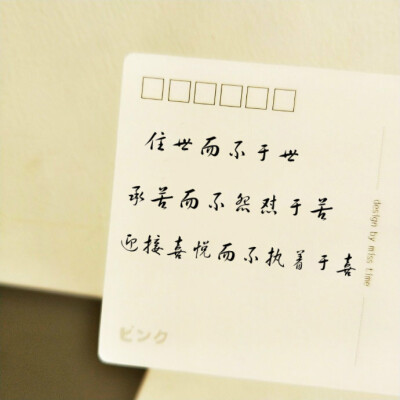 住世而不于世
承苦而不怨怼于苦
迎接喜悦而不执着于喜
design by miss time
ピンク